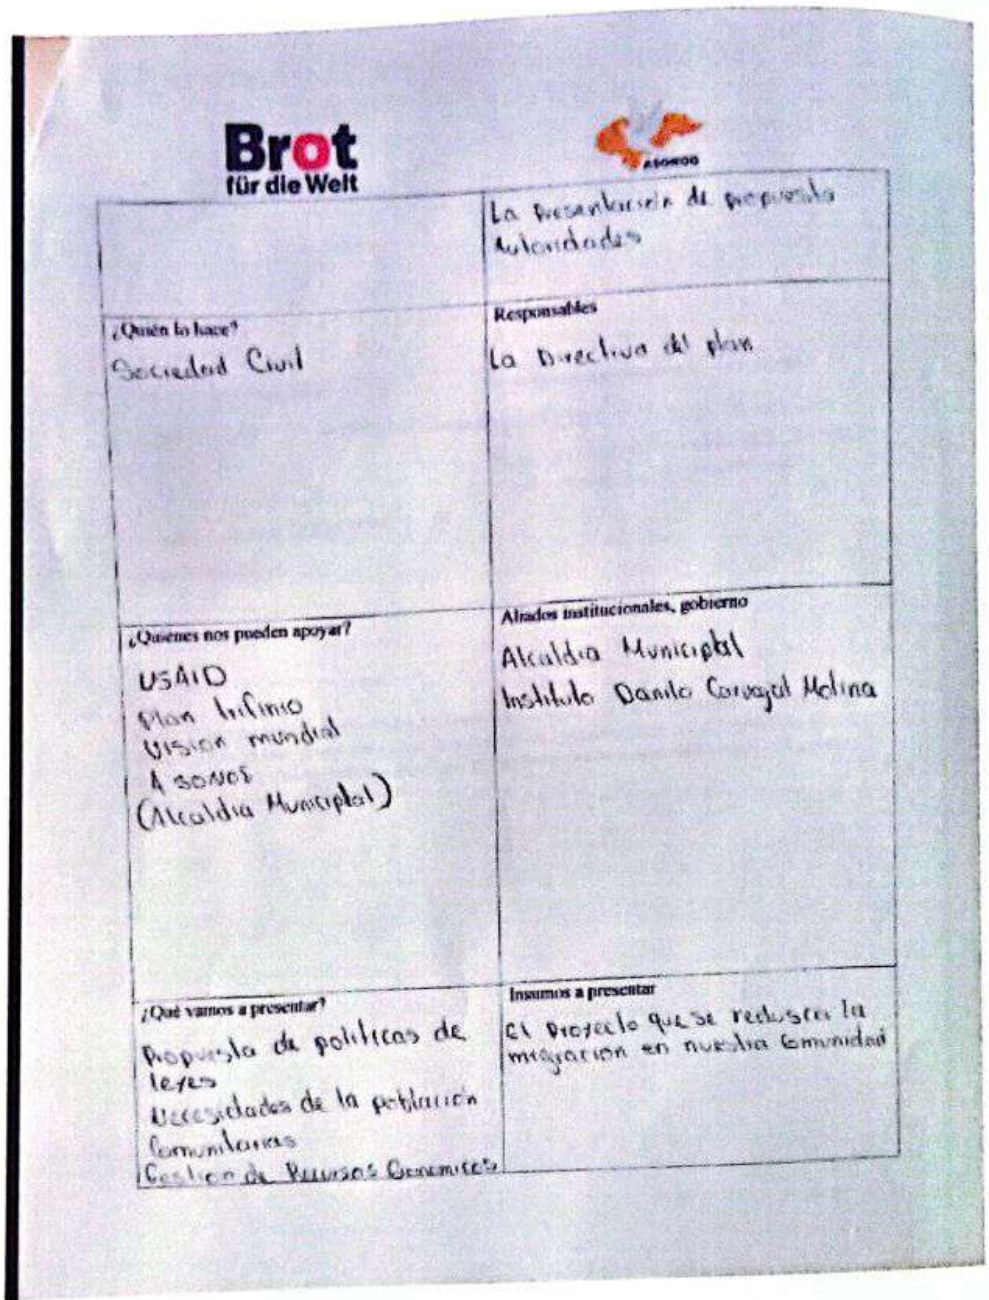 Brot
für die Welt
ASONOG
La Presentación de propuesta
Autoridades
¿Quién lo hace?
Sociedad Civil
Responsables
La Directiva del plan
¿Quiénes nos pueden apoyar?
USAID
Plan trifinio
Vision mundial
ASONOG
(Alcaldia Municipal)
Aliados institucionales, gobierno
Alcaldia Municipal
Instituto Danilo Carvajal Molina
¿Qué vamos a presentar?
Propuesta de politicas de
leyes
Necesidades de la población
Comunitarias
Gestion de Recursos Economicos
Insumos a presentar
El Proyecto que se redusca la
migracion en nuestra Comunidad